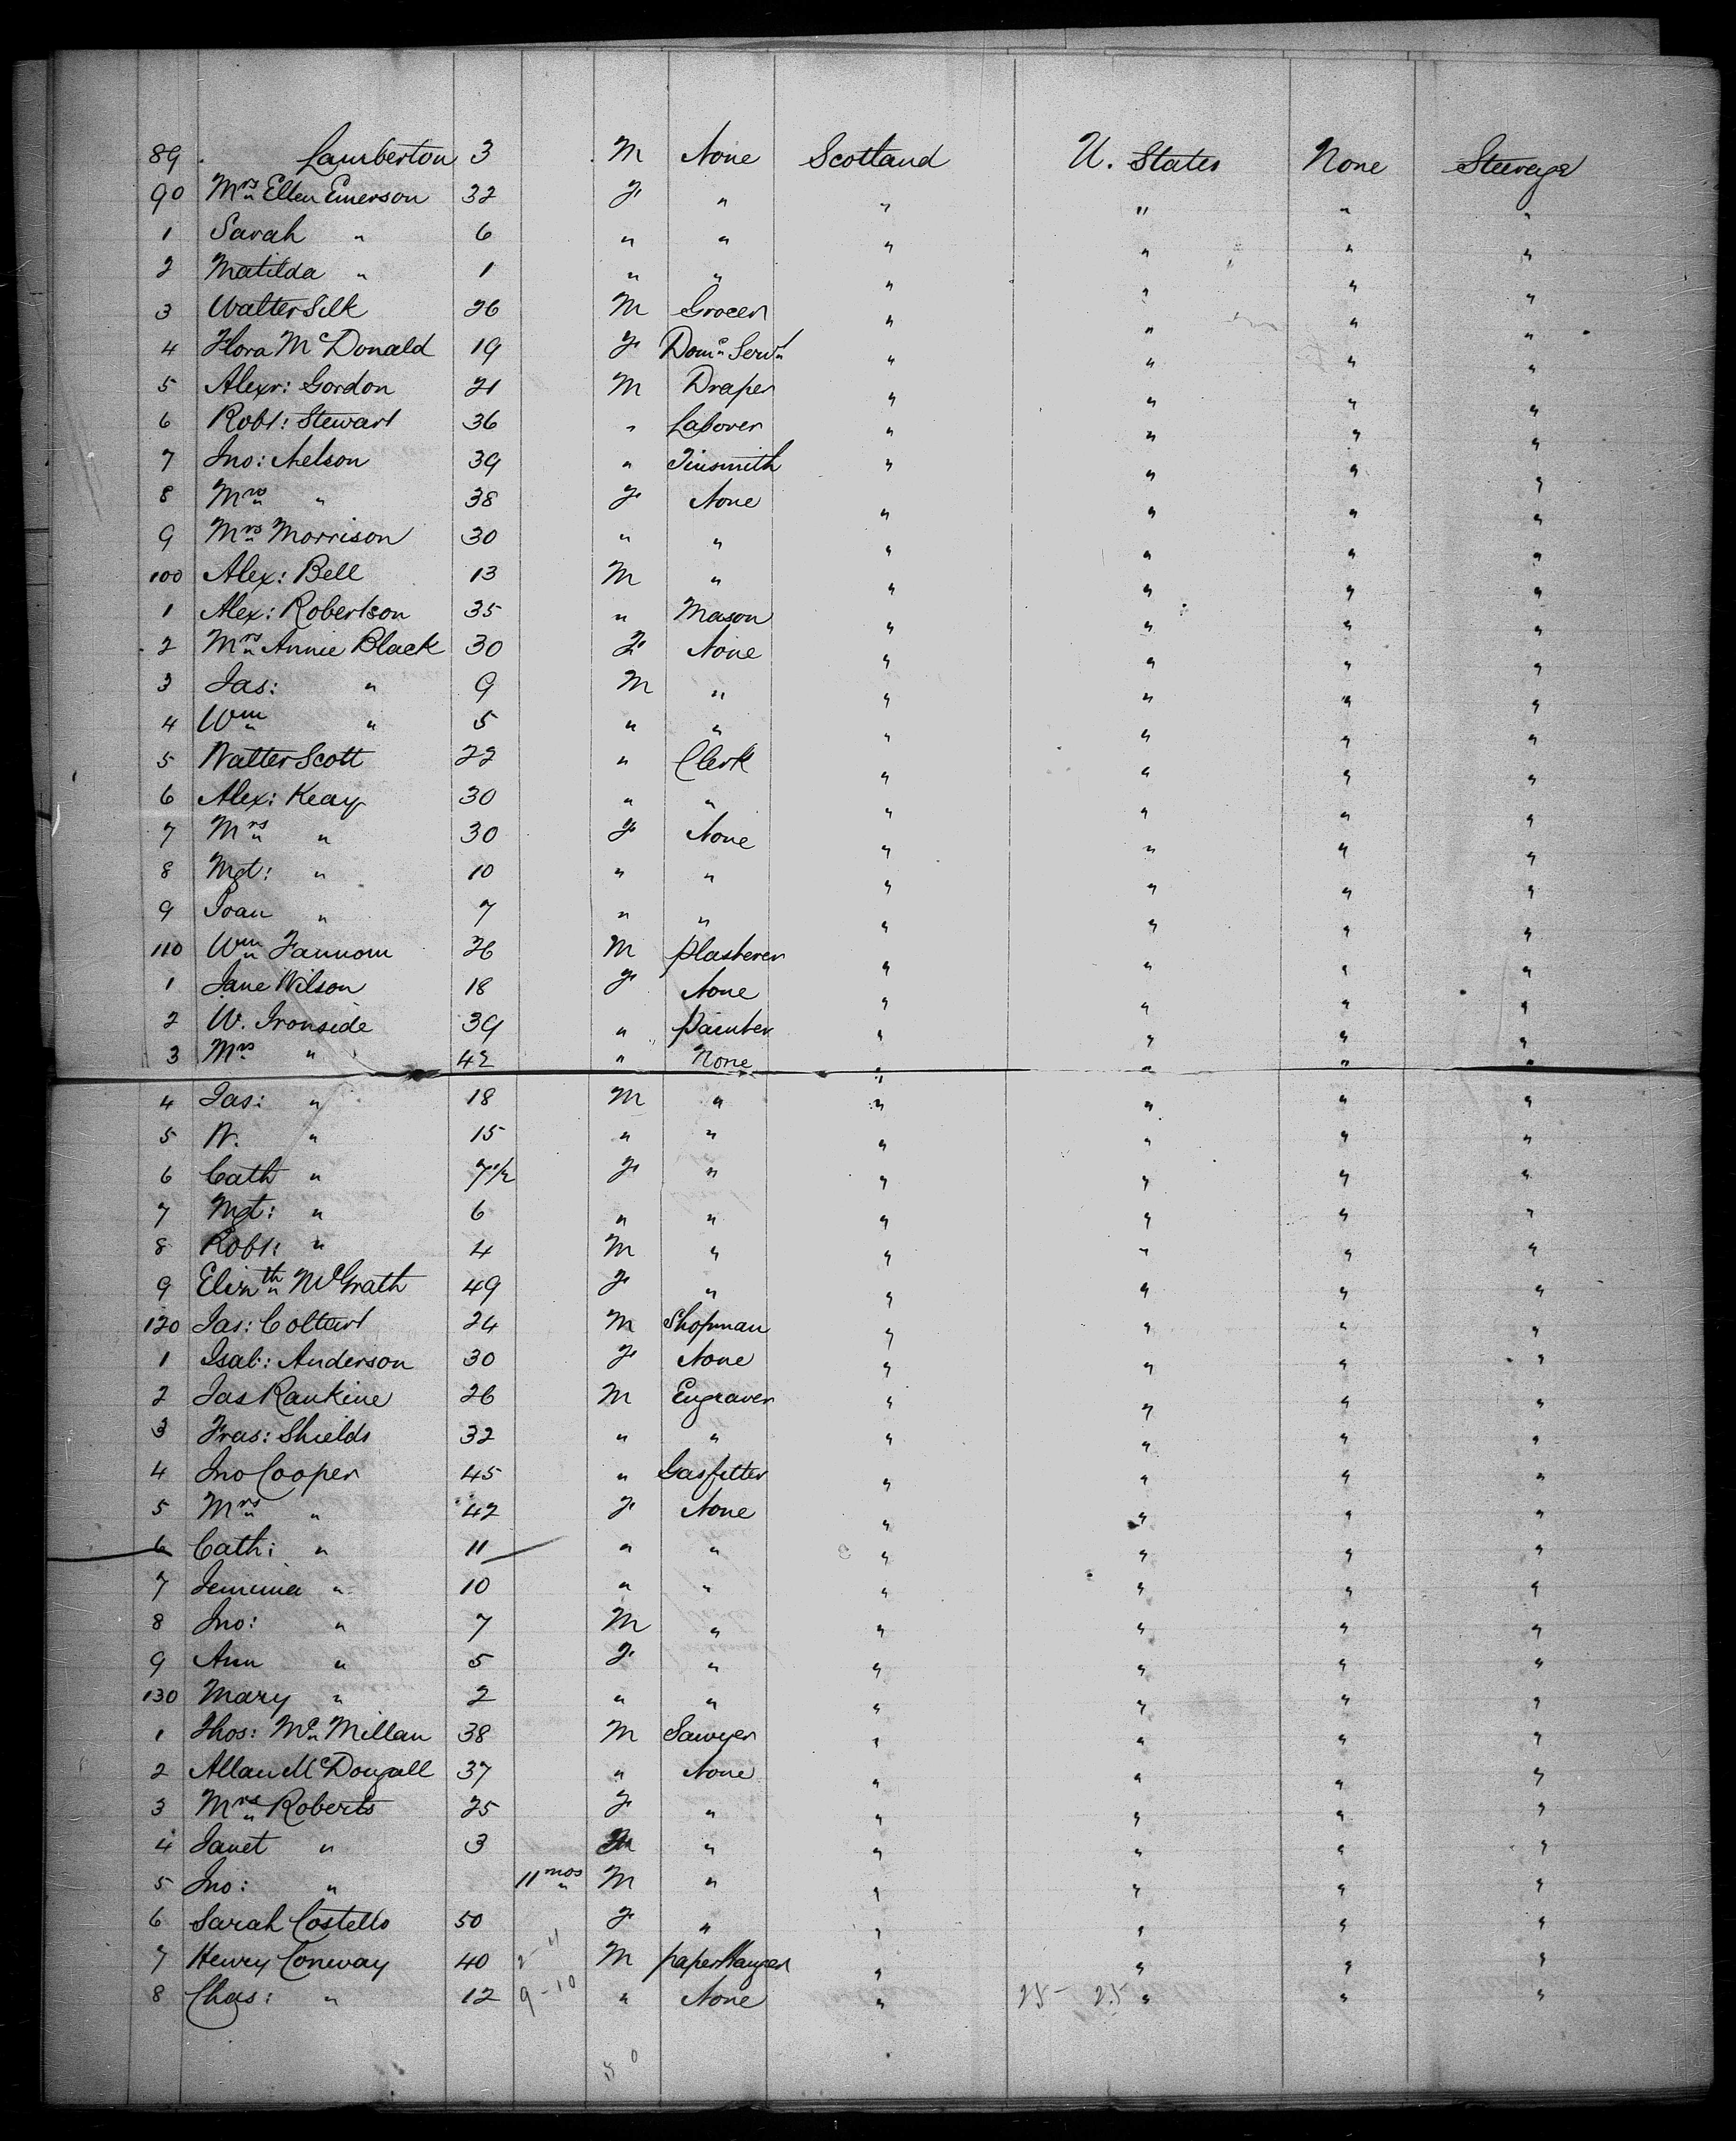 89 Lamberton 3 M None Scotland U. States None Steerage
90 Mrs Ellen Emerson 32 F " " " " "
1 Sarah " 6 " " " " " "
2 Matilda " 1 " " " " " "
3 Walter Silk 26 M Grocer " " " "
4 Flora McDonald 19 F Domc Servt " " " "
5 Alexr: Gordon 21 M Draper " " " "
6 Robt: Stewart 36 " Laborer " " " "
7 Jno: Nelson 39 " Tinsmith " " " "
8 Mrs " 38 F None " " " "
9 Mrs Morrison 30 " " " " " "
100 Alex: Bell 13 M " " " " "
1 Alex: Robertson 35 " Mason " " " "
2 Mrs Annie Black 30 F None " " " "
3 Jas: " 9 M " " " " "
4 Wm " 5 " " " " " "
5 Walter Scott 22 " Clerk " " " "
6 Alex: Keay 30 " " " " " "
7 Mrs " 30 F None " " " "
8 Mgt: " 10 " " " " " "
9 Joan " 7 " " " " " "
110 Wm Fannom 26 M plasterer " " " "
1 Jane Wilson 18 F None " " " "
2 W. Ironside 39 " painter " " " "
3 Mrs " 42 " None " " " "
4 Jas: " 18 M " " " " "
5 W. " 15 " " " " " "
6 Cath " 7 1/2 F " " " " "
7 Mgt: " 6 " " " " " "
8 Robt: " 4 M " " " " "
9 Elizth McGrath 49 F " " " " "
120 Jas: Coltart 24 M Shopman " " " "
1 Isab: Anderson 30 F None " " " "
2 Jas Rankine 26 M Engraver " " " "
3 Fras: Shields 32 " " " " " "
4 Jno Cooper 45 " Gasfitter " " " "
5 Mrs " 42 F None " " " "
6 Cath: " 11 " " " " " "
7 Jemima " 10 " " " " " "
8 Jno: " 7 M " " " " "
9 Ann " 5 F " " " " "
130 Mary " 2 " " " " " "
1 Thos: McMillan 38 M Sawyer " " " "
2 Allan McDougall 37 " None " " " "
3 Mrs Roberts 25 F " " " " "
4 Janet " 3 " " " " "
5 Jno: " 11 mos M " " " " "
6 Sarah Costello 50 F " " " " "
7 Henry Conway 40 2-11 M paperHanger " " " "
8 Chas: " 12 9-10 " None " 25 - 25 " " "